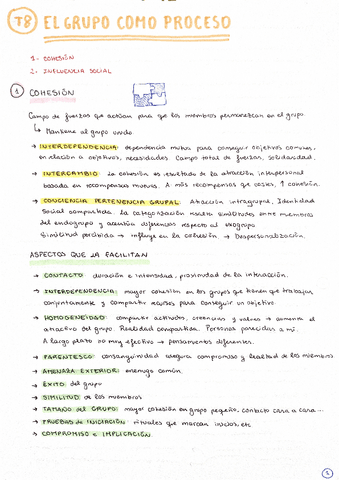 T8 EL GRUPO COMO PROCESO
1- COHESIÓN
2- INFLUENCIA SOCIAL
1 COHESIÓN
Campo de fuerzas que actúan para que los miembros permanezcan en el grupo.
↳ Mantiene al grupo unido.
→ INTERDEPENDENCIA: dependencia mutua para conseguir objetivos comunes,
en relación a objetivos, necesidades. Campo total de fuerzas, solidaridad.
→ INTERCAMBIO: la cohesión es resultado de la atracción interpersonal
basada en recompensas mutuas. A más recompensas que costes, ↑ cohesión.
→ CONCIENCIA PERTENENCIA GRUPAL: Atracción intragrupal. Identidad
Social compartida. la categorización resalta similitudes entre miembros
del endogrupo y acentúa diferencias respecto al exogrupo
Similitud percibida → influye en la cohesión → Despersonalización.
ASPECTOS QUE LA FACILITAN
→ CONTACTO: duración e intensidad, proximidad de la interacción.
→ INTERDEPENDENCIA: mayor cohesión en los grupos que tienen que trabajar
conjuntamente y compartir recursos para conseguir un objetivo.
→ HOMOGENEIDAD: compartir actitudes, creencias y valores → aumenta el
atractivo del grupo. Realidad compartida. Personas parecidas a mi.
A largo plazo no muy efectivo → pensamientos diferentes.
→ PARENTESCO: consanguinidad asegura compromiso y lealtad de los miembros
→ AMENAZA EXTERIOR: enemigo común
→ ÉXITO del grupo
→ SIMILITUD de los miembros
→ TAMAÑO del GRUPO: mayor cohesión en grupo pequeño, contacto cara a cara...
→ PRUEBAS DE INICIACIÓN: rituales que marcan inicios, etc
→ COMPROMISO e IMPLICACIÓN
1